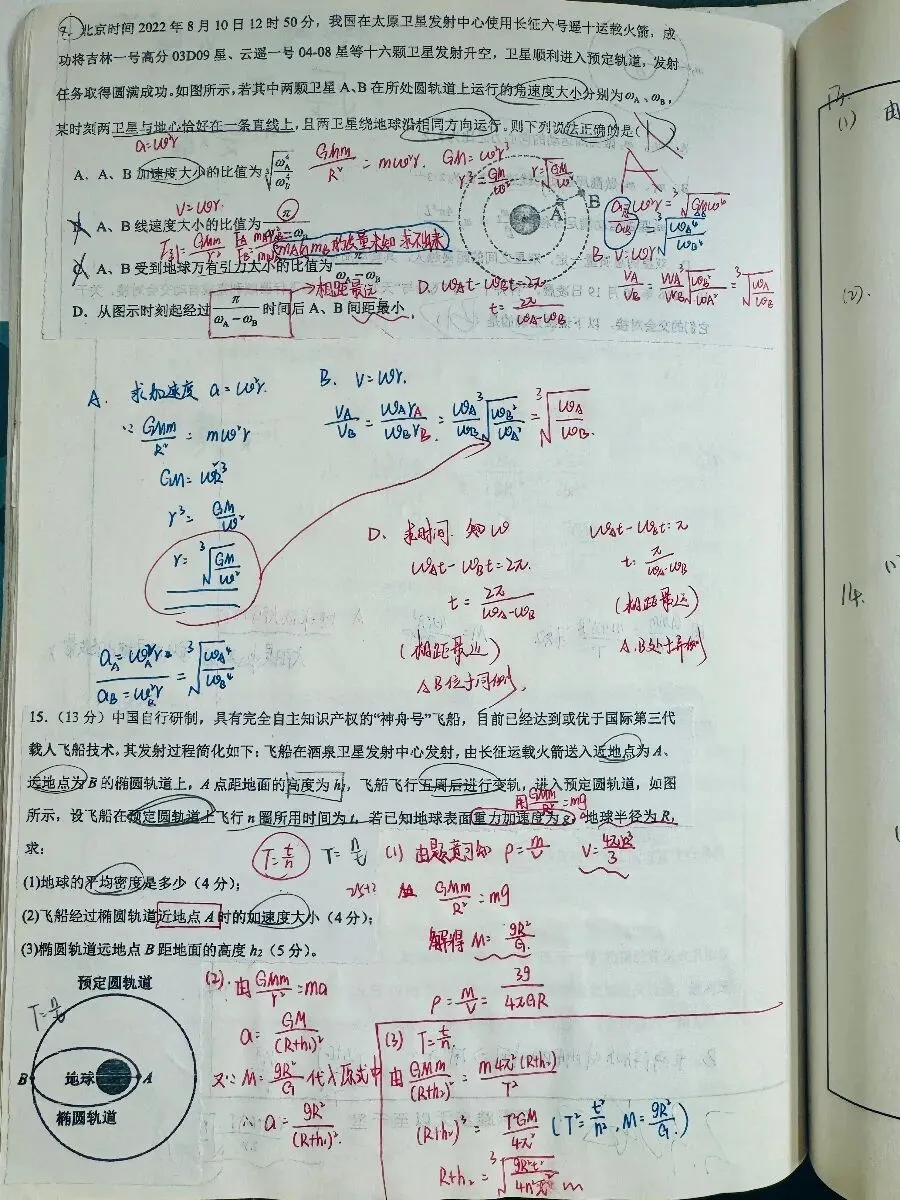 北京时间2022年8月10日12时50分，我国在太原卫星发射中心使用长征六号遥十运载火箭，成
功将吉林一号高分03D09星、云遥一号04-08星等十六颗卫星发射升空，卫星顺利进入预定轨道，发射
任务取得圆满成功。如图所示，若其中两颗卫星A、B在所处圆轨道上运行的角速度大小分别为ω_A、ω_B，
某时刻两卫星与地心恰好在一条直线上，且两卫星绕地球沿相同方向运行。则下列说法正确的是(
D
A
a=ω²r
A．A、B加速度大小的比值为∛(ω_A⁴/ω_B⁴)
GMm/R²=mω²r. GM=ω²r³
r³=GM/ω² r=∛(GM/ω²)
A B
V=ωr.
B．A、B线速度大小的比值为π/(ω_A-ω_B)
F引=GMm/r²
mA和mB的质量未知 求不出来
C．A、B受到地球万有引力大小的比值为 /(ω_A-ω_B)
→相距最远
D．从图示时刻起经过π/(ω_A-ω_B)时间后A、B间距最小
D. ω_At-ω_Bt=2π
t=2π/(ω_A-ω_B)
a=ω²r=∛(GMω⁴)
∛(ω_A⁴/ω_B⁴)
B. V=ωr
V_A/V_B=ω_A/ω_B∛(ω_B²/ω_A²)=∛(ω_A/ω_B)
A. 求加速度 a=ω²r.
∵GMm/R²=mω²r
GM=ω²R³
r³=GM/ω²
r=∛(GM/ω²)
a_A=ω_A²r/a_B=ω_B²r=∛(ω_A⁴/ω_B⁴)
B. V=ωr.
V_A/V_B=ω_Ar_A/ω_Br_B=ω_A/ω_B∛(ω_B²/ω_A²)=∛(ω_A/ω_B).
D. 求时间. 知ω
ω_At-ω_Bt=2π.
t=2π/(ω_A-ω_B)
(相距最近)
A B位于同侧.
ω_At-ω_Bt=π
t=π/(ω_A-ω_B)
(相距最远)
A.B处于异侧
15．（13分）中国自行研制，具有完全自主知识产权的“神舟号”飞船，目前已经达到或优于国际第三代
载人飞船技术，其发射过程简化如下：飞船在酒泉卫星发射中心发射，由长征运载火箭送入近地点为A、
远地点为B的椭圆轨道上，A点距地面的高度为h₁，飞船飞行五周后进行变轨，进入预定圆轨道，如图
用GMm/R²=mg
所示，设飞船在预定圆轨道上飞行n圈所用时间为t，若已知地球表面重力加速度为g，地球半径为R，
求：
T=t/n T=n/t
(1)地球的平均密度是多少（4分）；
(2)飞船经过椭圆轨道近地点A时的加速度大小（4分）；
(3)椭圆轨道远地点B距地面的高度h₂（5分）。
(1) 由题意可知 ρ=m/V V=4πR³/3
GMm/R²=mg
解得 M=gR²/G.
ρ=m/V=3g/4πGR
预定圆轨道
T=n/t
B 地球 A
椭圆轨道
(2).由GMm/r²=ma
a=GM/(R+h₁)²
又∵M=gR²/G代入原式中
∴a=gR²/(R+h₁)².
(3) T=t/n.
由GMm/(R+h₂)²=m4π²(R+h₂)/T²
(R+h₂)³=T²GM/4π² (T²=t²/n²,M=gR²/G.)
R+h₂=∛(gR²t²/4n²π²) m
(1) 由
(2).
14.